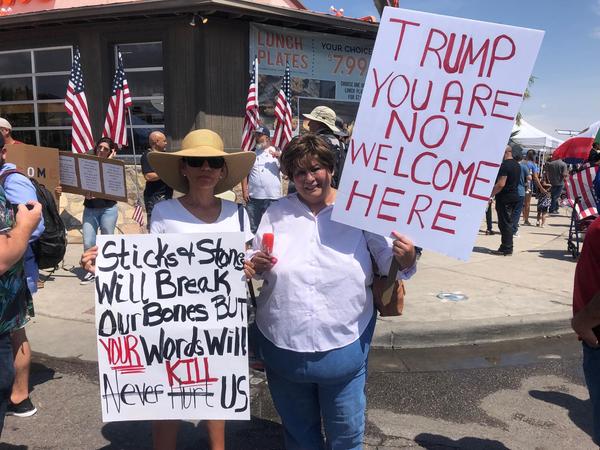 LUNCH
PLATES
YOUR CHOICE
$7.99
TRUMP
YOU ARE
NOT
WELCOME
HERE
Sticks & Stones
Will Break
Our Bones BUT
YOUR Words Will
KILL
Never Hurt US